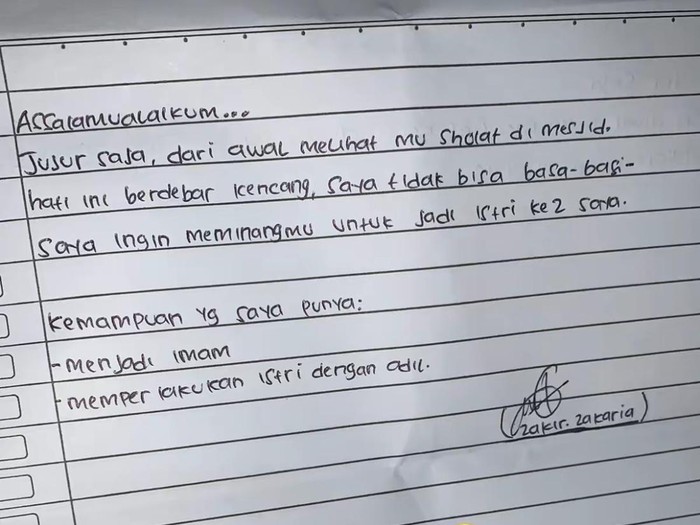 Assalamualaikum...
Jujur saja, dari awal melihat mu sholat di mesjid.
hati ini berdebar kencang, saya tidak bisa basa-basi-
saya ingin meminangmu untuk jadi istri ke 2 saya.
kemampuan yg saya punya:
- menjadi imam
- memper lakukan istri dengan adil.
(zakir. zakaria)